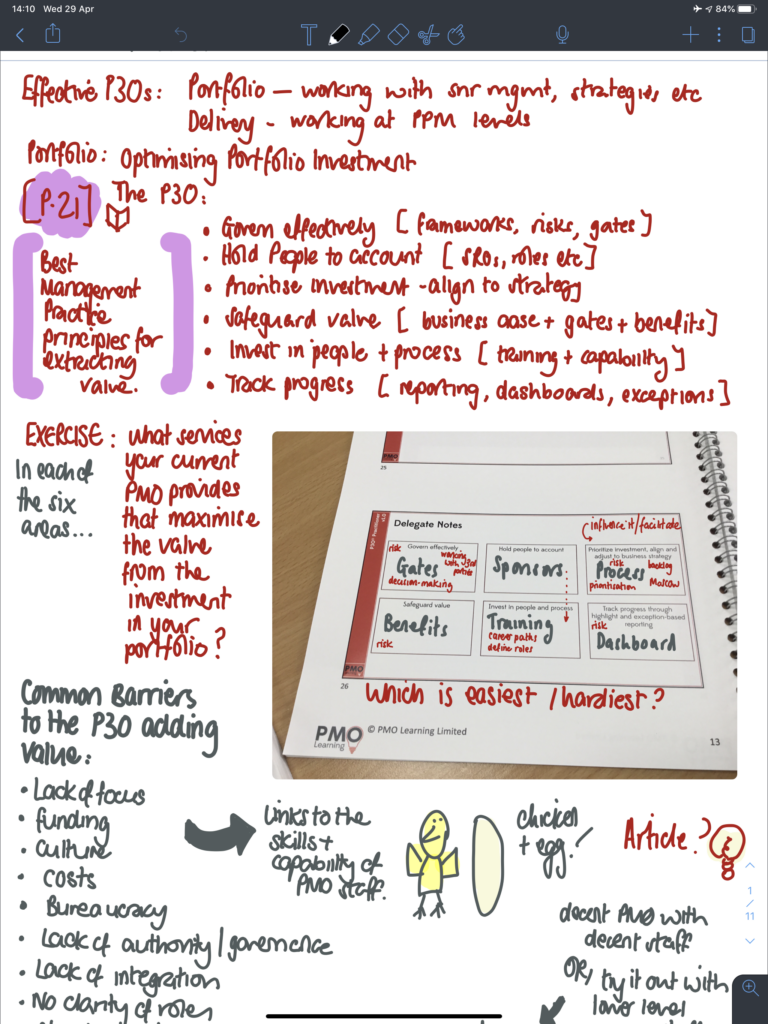 14:10 Wed 29 Apr
84%
T
Effective P3Os: Portfolio – working with snr mgmt, strategies etc
Delivery – working at PPM levels
Portfolio: Optimising Portfolio Investment
[P.21] The P3O:
Best
Management
Practice
principles for
extracting
value.
• Govern effectively [frameworks, risks, gates]
• Hold People to account [SROs, roles etc]
• Prioritise investment - align to strategy
• Safeguard value [business case + gates + benefits]
• Invest in people + process [training + capability]
• Track progress [reporting, dashboards, exceptions]
EXERCISE: what services
your current
PMO provides
that maximise
the value
from the
investment
in your
portfolio?
In each of
the six
areas...
PMO
25
Delegate Notes
influence it/facilitate
Govern effectively
risk
Gates
working
with 3rd
parties
decision-making
Hold people to account
Sponsors
Prioritize investment, align and
adjust to business strategy
risk
Process
backlog
prioritisation
Moscow
Safeguard value
Benefits
risk
Invest in people and process
Training
career paths
define roles
Track progress through
highlight and exception-based
reporting
risk
Dashboard
PMO
26
Which is easiest / hardiest?
PMO
Learning
© PMO Learning Limited
13
Common Barriers
to the P3O adding
value:
• Lack of focus
• funding
• culture
• costs
• Bureaucracy
• Lack of authority/governence
• Lack of integration
• No clarity of roles
Links to the
skills +
capability of
PMO staff.
chicken
+ egg!
Article?
1
/
11
decent PMO with
decent staff
OR, try it out with
lower level